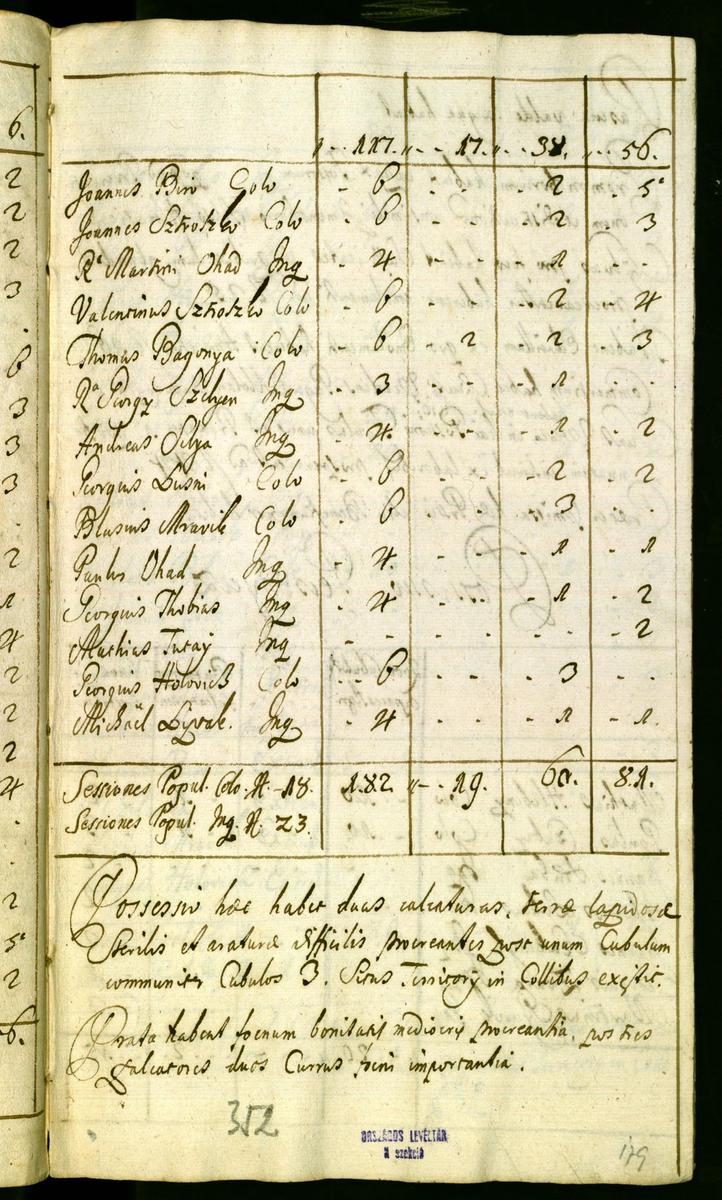 " - - 117. " - - 17. " - - 38. " - - 56.
Joannes Biro Colo - 6 - - - 2 - 5
Joannes Sztoszko Colo - 6 - - - 2 - 3
Ra Martini Ohad Inq - 4 - - - 1 - -
Valentinus Sztoszko Colo - 6 - - - 2 - 4
Thomas Bagonya Colo - 6 - 2 - 2 - 3
Ra Georgy Inq - 3 - - - 1 - -
Andreas Inq - 4. - - - 1 - 2
Georgius Colo - 6 - - - 2 - 2
Blasius Mravik Colo - 6 - - - 3 - -
Paulus Ohad Inq - 4. - - - 1 - 1
Georgius Thobias Inq - 4 - - - 1 - 2
Mathias Inq - - - - - - - 2
Georgius Colo - 6 - - - 3 - -
Michaël Inq - 4 - - - 1 - 1.
Sessiones Popul. Colo. N. - 18. 182. " - - 19. 60. 81.
Sessiones Popul. Inq. N. 23.
Possessio hæc habet duas calcaturas, terræ lapidosæ
Sterilis et araturæ difficilis procreantes post unum Cubulum
communiter Cubulos 3. Situs Territory in Collibus
Prata habent foenum bonitatis mediocris procreantia, post tres
falcatores duos Currus foeni importantia.
352
ORSZÁGOS LEVÉLTÁR
N szekció
179
6.
2
2
2
3
6
3
3
3
2
1
4
2
2
2
4
2
5
2
6.